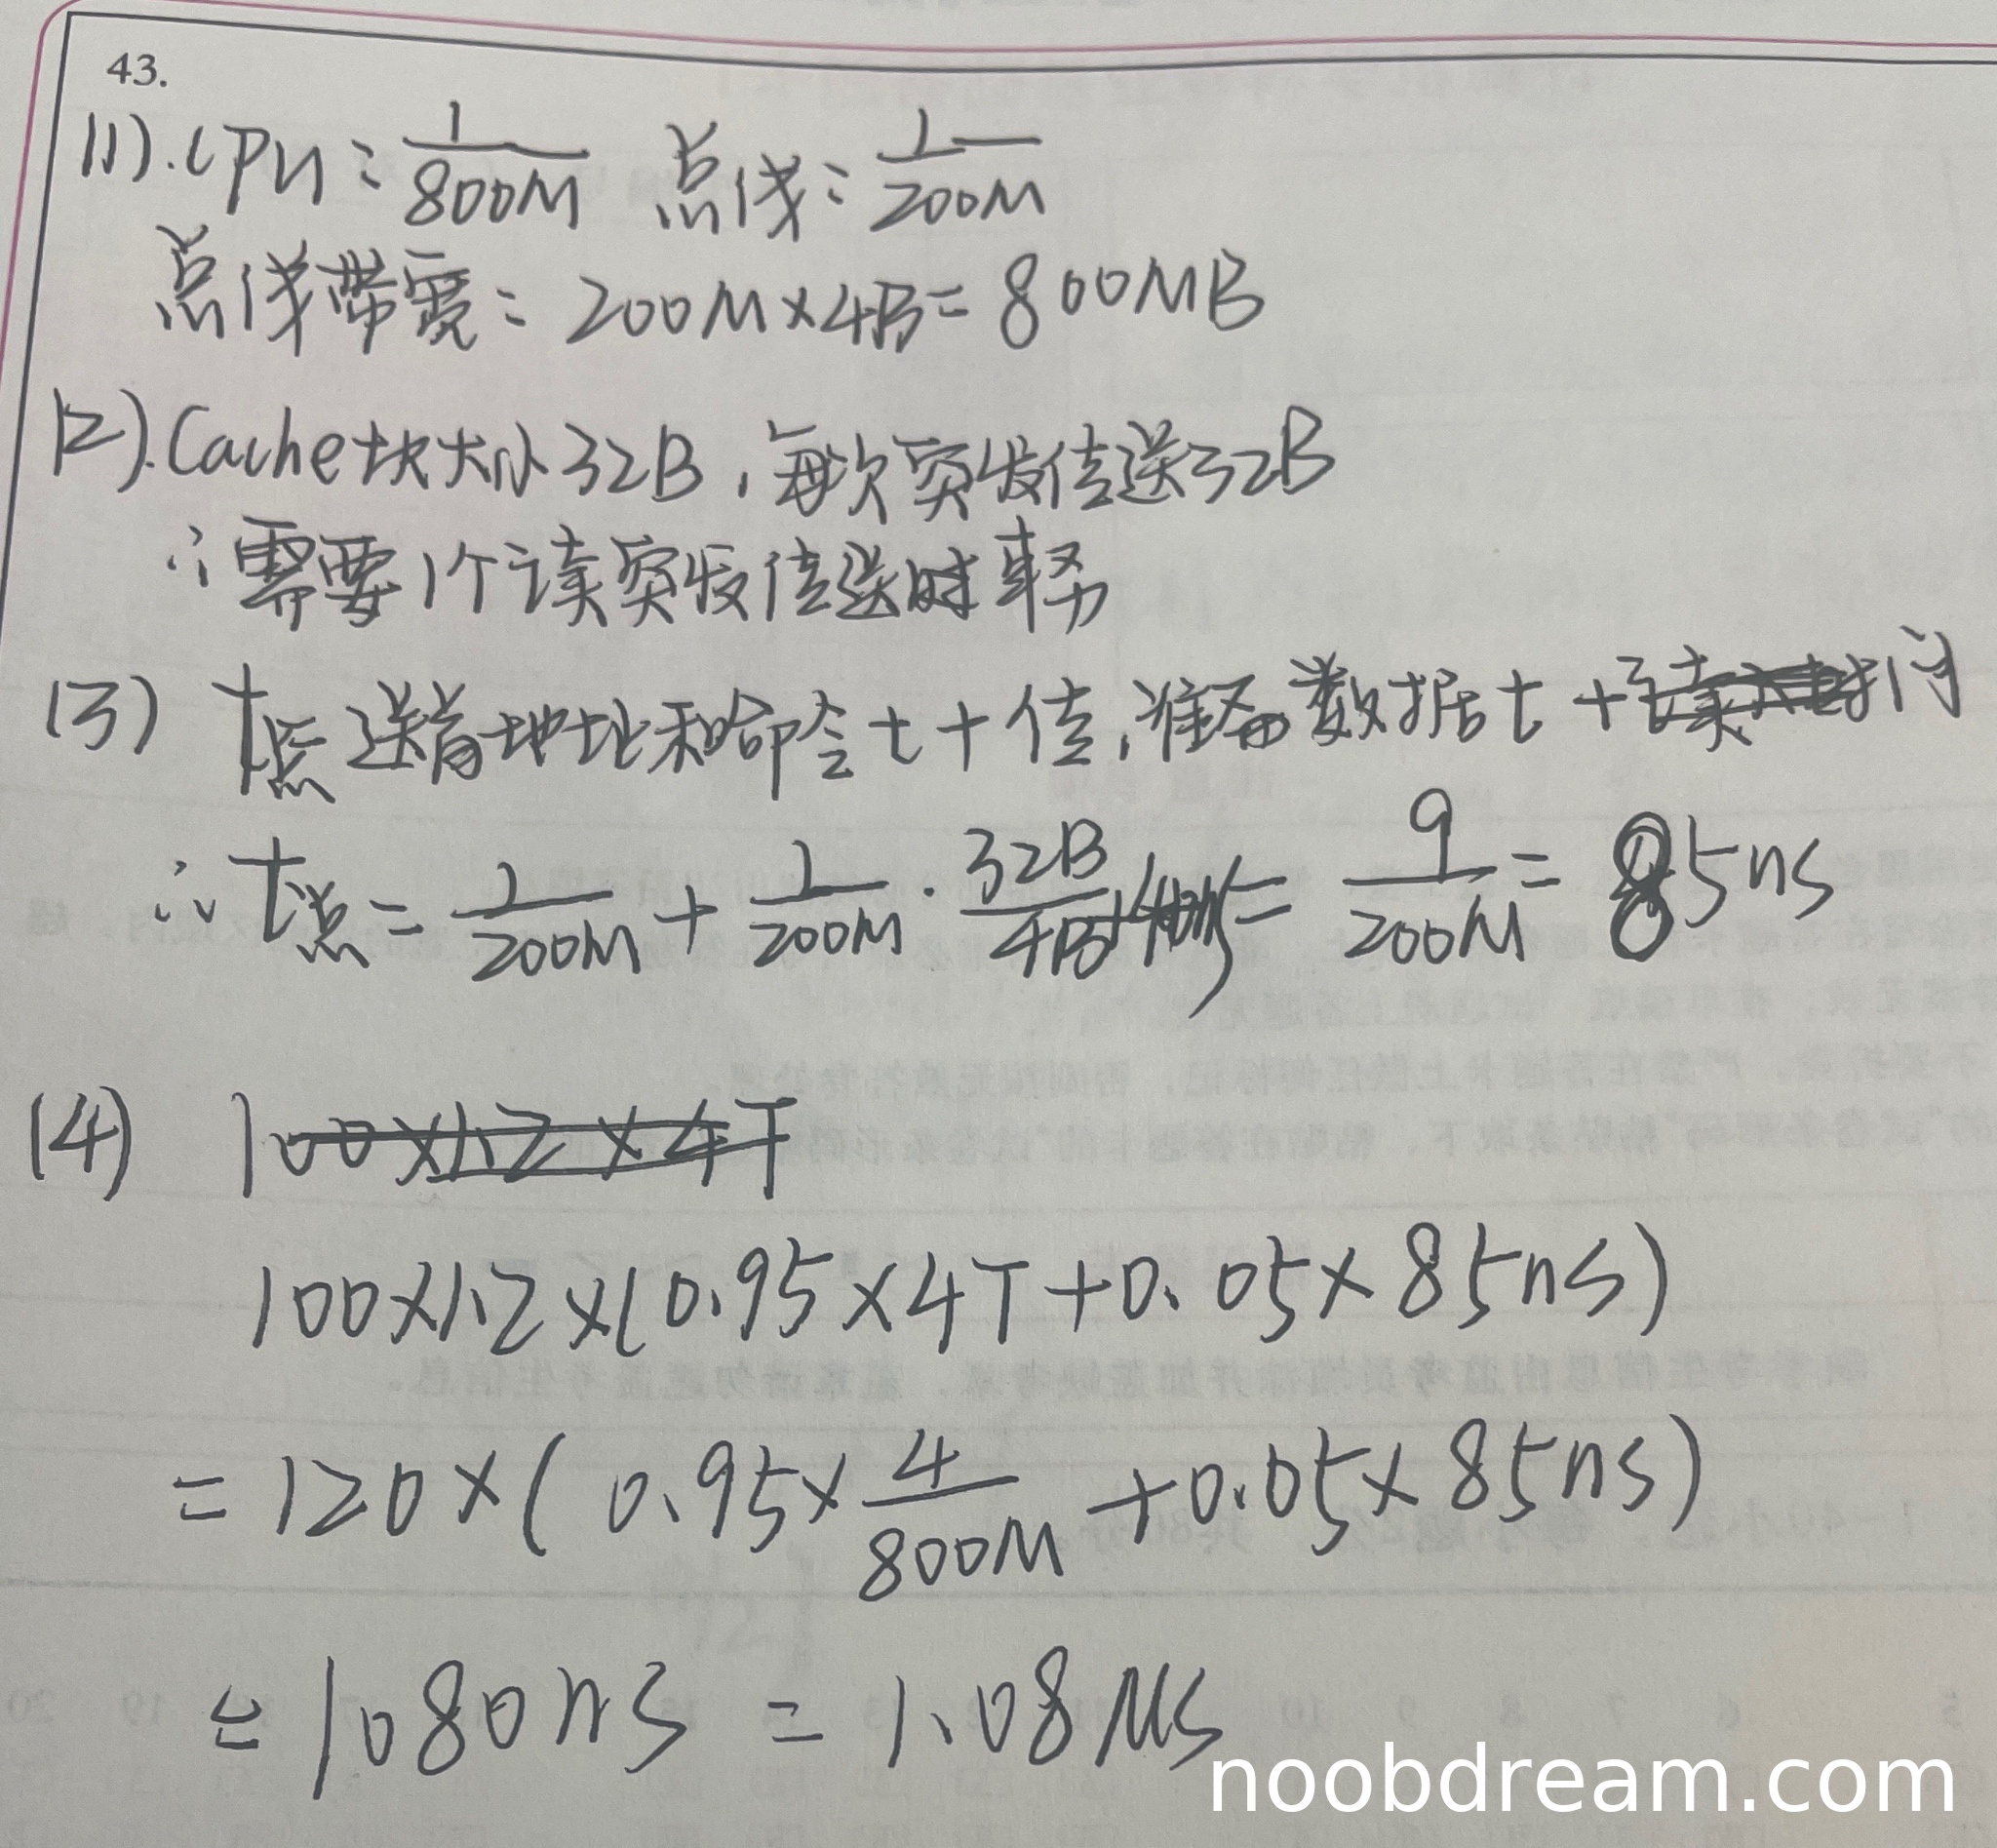 43.
(1).CPU: 1/800M 总线: 1/200M
总线带宽= 200M×4B=800MB
(2).Cache块大小32B,每次突发传送32B
∴需要1个读突发传送事务
(3) t总 送首地址和命令t+传,准备数据t+
∴t总= 1/200M + 1/200M · 32B/4B = 9/200M = 85ns
(4) 100×1.2×4T
100×1.2×(0.95×4T+0.05×85ns)
=120×(0.95×4/800M+0.05×85ns)
=1080ns = 1.08μs
noobdream.com